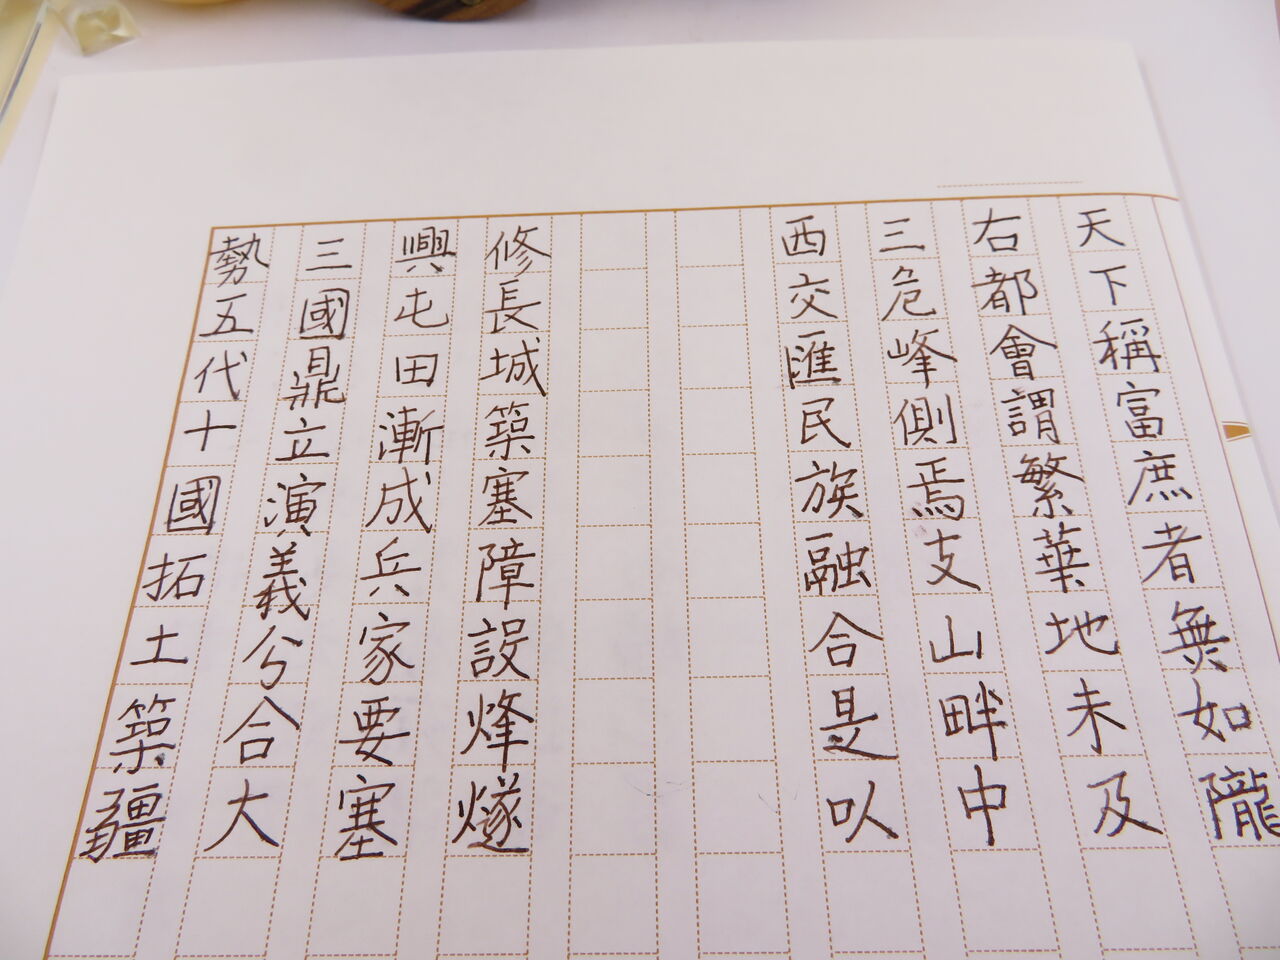 天下稱富庶者無如隴
右都會謂繁華地未及
三危峰側焉支山畔中
西交匯民族融合是以
修長城築塞障設烽燧
興屯田漸成兵家要塞
三國鼎立演義兮合大
勢五代十國拓土築疆